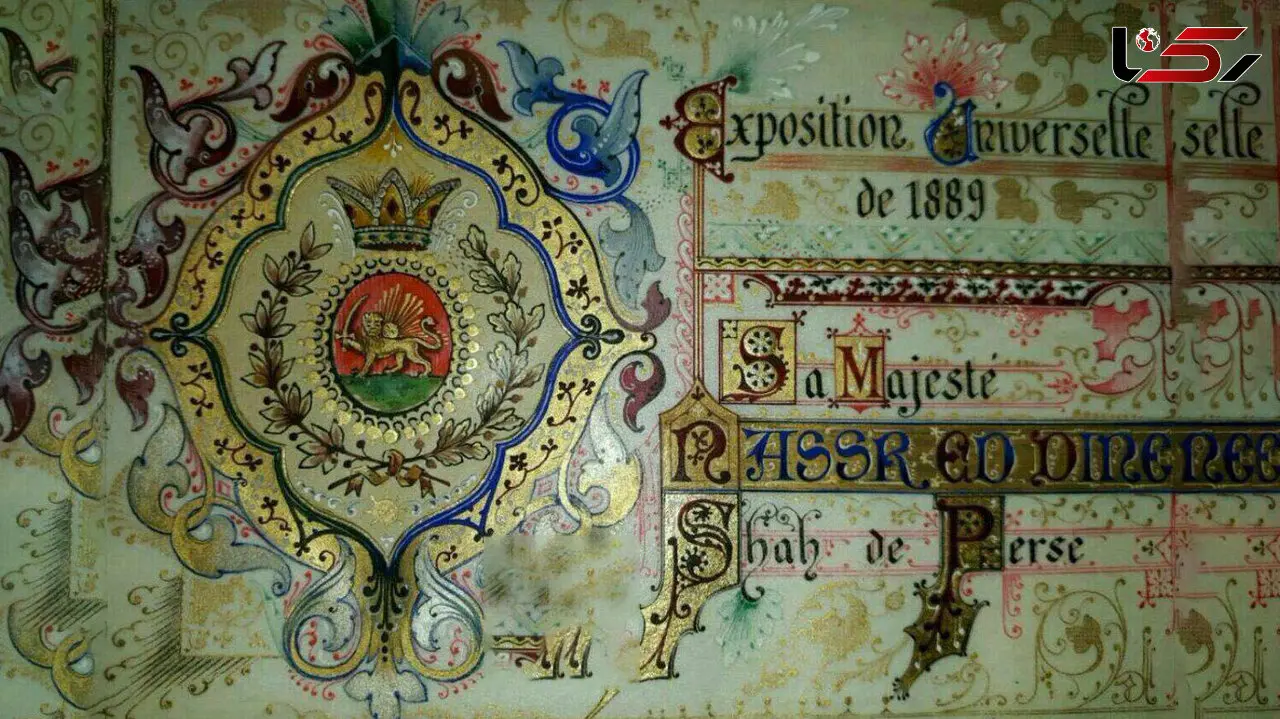 رکنا
Exposition Universelle selle
de 1889
Sa Majesté
NASSR ED DINE NEE
Shah de Perse